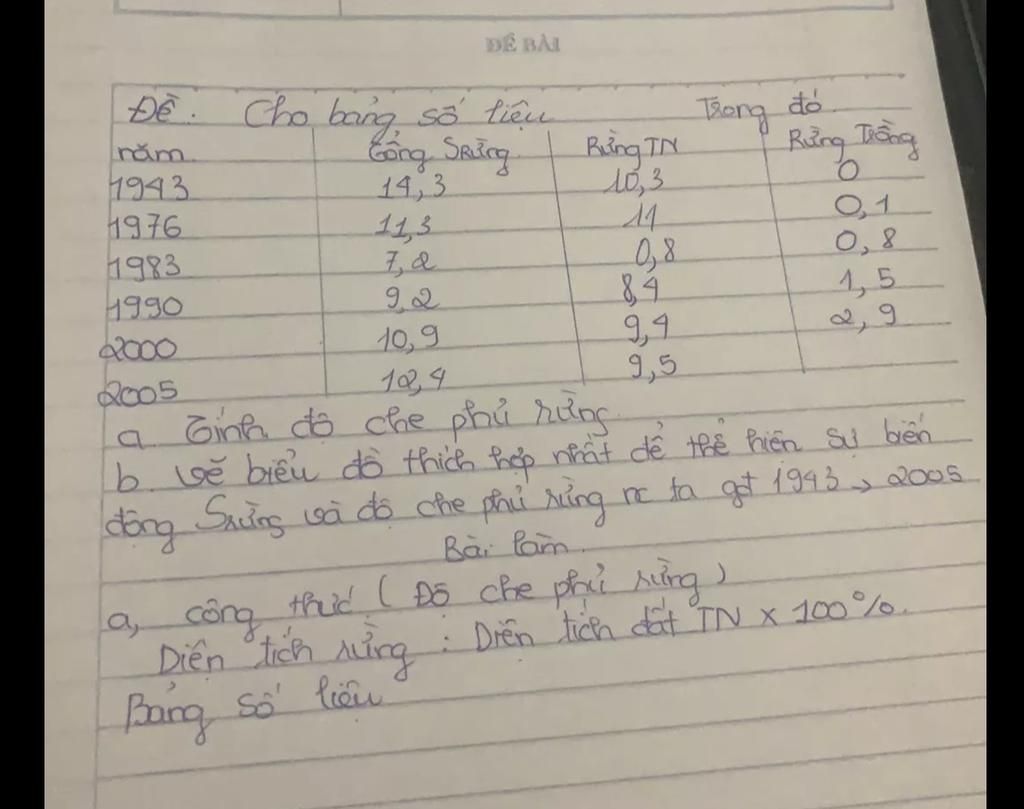 ĐỀ BÀI
Đề. Cho bảng số liệu Trong đó
năm Tổng Srừng Rừng TN Rừng Trồng
1943 14,3 10,3 0
1976 11,3 11 0,1
1983 7,2 0,8 0,8
1990 9,2 8,4 1,5
2000 10,9 9,4 2,9
2005 12,4 9,5
a Tính độ che phủ rừng.
b. vẽ biểu đồ thích hợp nhất để thể hiện sự biến
động Srừng và độ che phủ rừng nc ta gđ 1943 → 2005
Bài làm.
a, công thức (Độ che phủ rừng)
Diện tích rừng : Diện tích đất TN x 100%.
Bảng số liệu